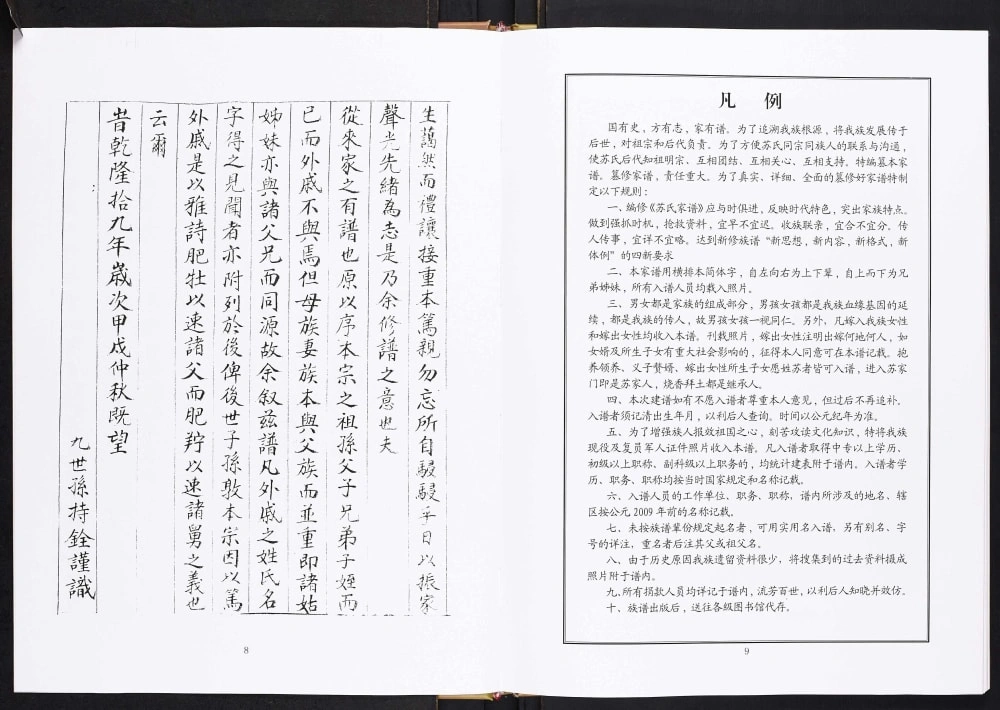 生藹然而禮讓接重本篤親勿忘所自駸駸乎日以振家
聲光先緒為志是乃余修譜之意也夫
從來家之有譜也原以序本宗之祖孫父子兄弟子姪而
已而外戚不與焉但母族妻族本與父族而並重即諸姑
姊妹亦與諸父兄而同源故余叙茲譜凡外戚之姓氏名
字得之見聞者亦附列於後俾後世子孫敦本宗因以篤
外戚是以雅詩肥牡以速諸父而肥羜以速諸舅之義也
云爾
旹乾隆拾九年歲次甲戌仲秋既望
九世孫持銓謹識
8
凡 例
国有史，方有志，家有谱。为了追溯我族根源，将我族发展传于
后世，对祖宗和后代负责。为了方便苏氏同宗同族人的联系与沟通，
使苏氏后代知祖明宗、互相团结、互相关心、互相支持。特编纂本家
谱。纂修家谱，责任重大。为了真实、详细、全面的纂修好家谱特制
定以下规则：
一、编修《苏氏家谱》应与时俱进，反映时代特色，突出家族特点。
做到强抓时机，抢救资料，宜早不宜迟。收族联亲，宜合不宜分。传
人传事，宜详不宜略。达到新修族谱“新思想，新内容，新格式，新
体例”的四新要求
二、本家谱用横排本简体字，自左向右为上下辈，自上而下为兄
弟姊妹，所有入谱人员均载入照片。
三、男女都是家族的组成部分，男孩女孩都是我族血缘基因的延
续，都是我族的传人，故男孩女孩一视同仁。另外，凡嫁入我族女性
和嫁出女性均收入本谱。刊载照片，嫁出女性注明出嫁何地何人，如
女婿及所生子女有重大社会影响的，征得本人同意可在本谱记载。抱
养领养、义子赘婿、嫁出女性所生子女愿姓苏者皆可入谱，进入苏家
门即是苏家人，烧香拜土都是继承人。
四、本次建谱如有不愿入谱者尊重本人意见，但过后不再追补。
入谱者须记清出生年月，以利后人查询。时间以公元纪年为准。
五、为了增强族人报效祖国之心，刻苦攻读文化知识，特将我族
现役及复员军人证件照片收入本谱。凡入谱者取得中专以上学历、
初级以上职称、副科级以上职务的，均统计建表附于谱内。入谱者学
历、职务、职称均按当时国家规定和名称记载。
六、入谱人员的工作单位、职务、职称，谱内所涉及的地名、辖
区按公元 2009 年前的名称记载。
七、未按族谱辈份规定起名者，可用实用名入谱，另有别名、字
号的详注，重名者后注其父或祖父名。
八、由于历史原因我族遗留资料很少，将搜集到的过去资料摄成
照片附于谱内。
九、所有捐款人员均详记于谱内，流芳百世，以利后人知晓并效仿。
十、族谱出版后，送往各级图书馆代存。
9